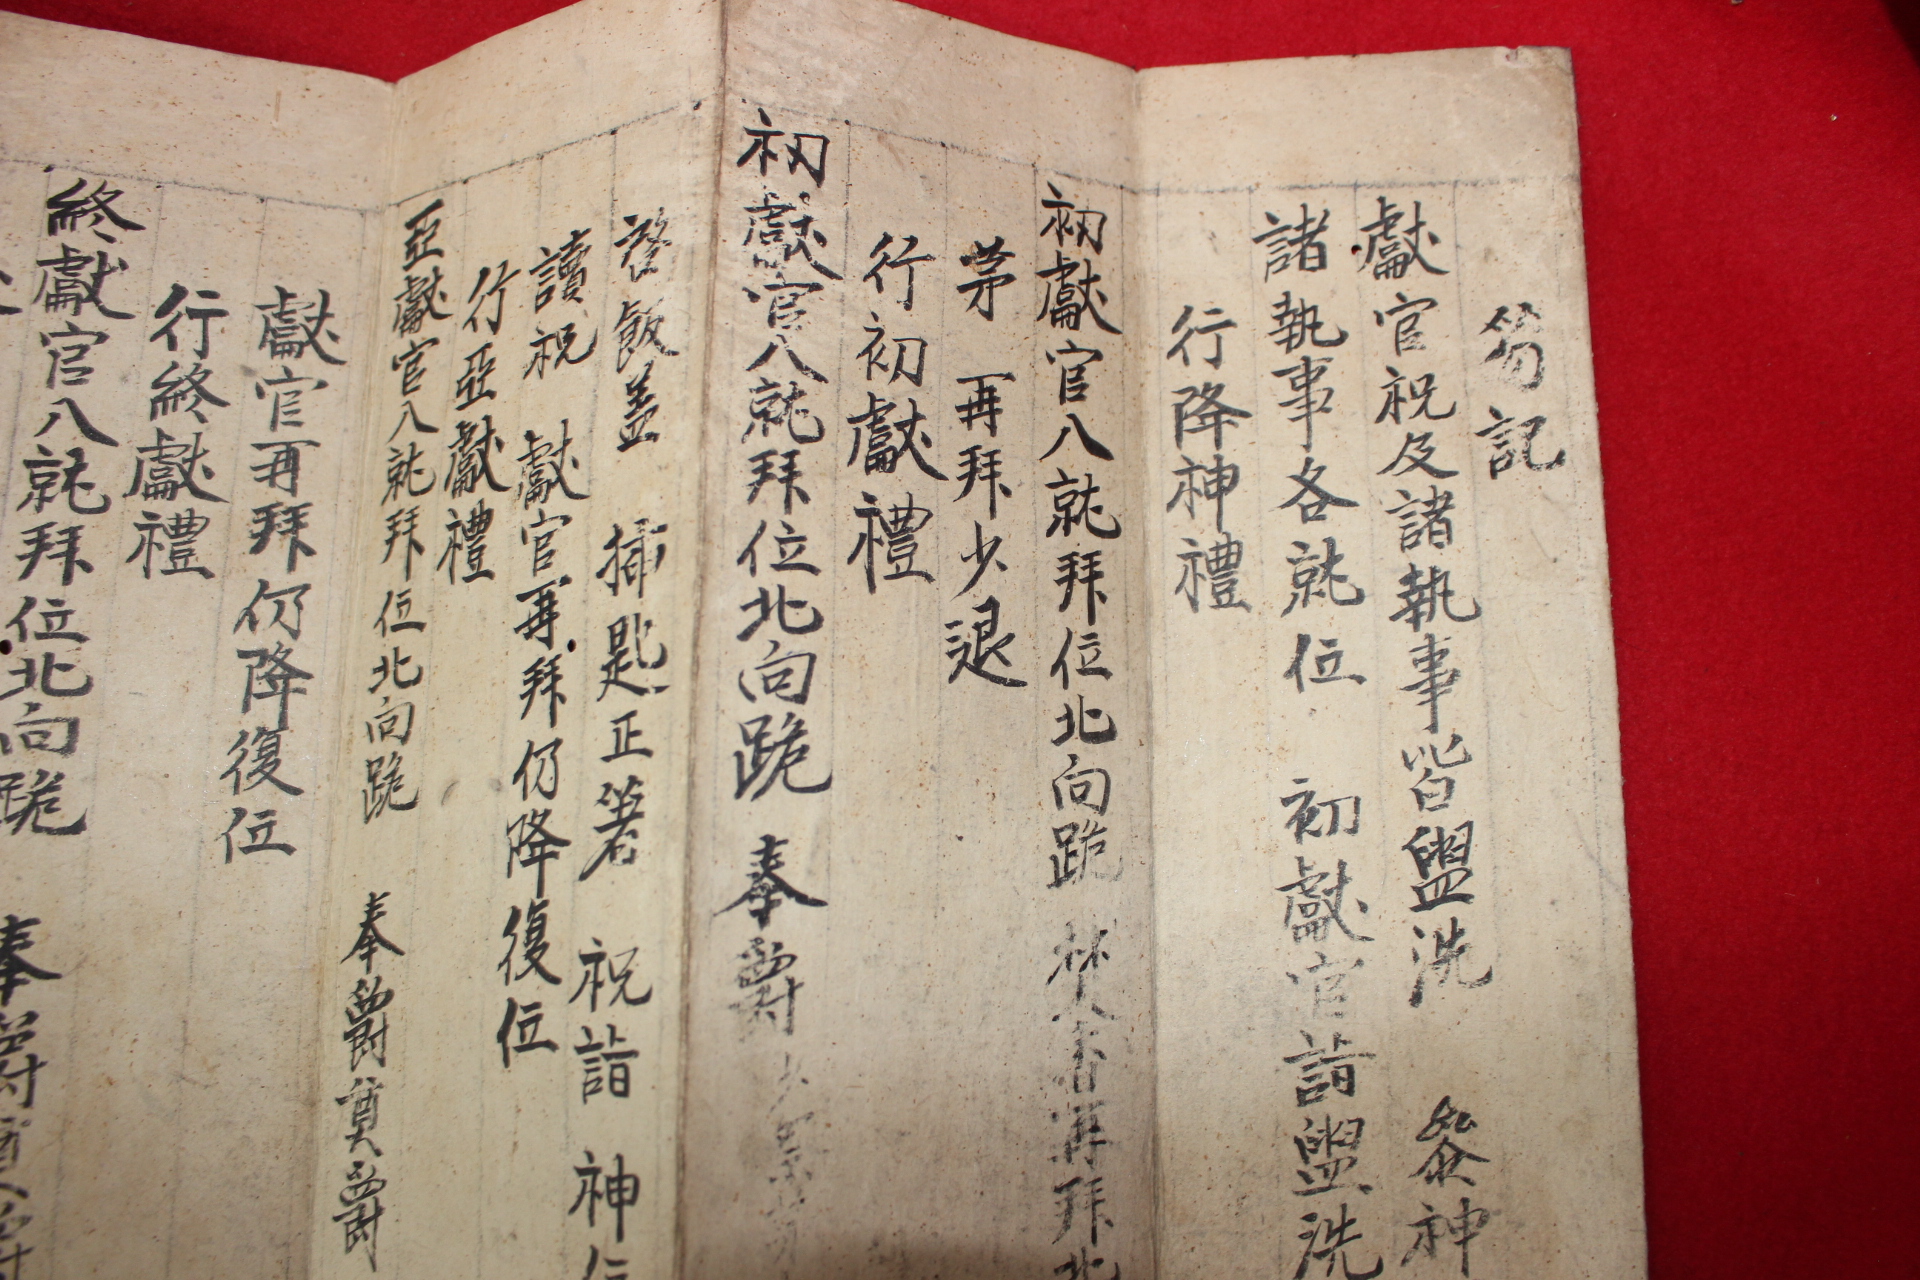 笏記
獻官祝及諸執事皆盥洗 參神
諸執事各就位 初獻官詣盥洗
行降神禮
初獻官入就拜位北向跪 焚香再拜北
茅 再拜少退
行初獻禮
初獻官入就拜位北向跪 奉爵
啓飯盖 揷匙正箸 祝詣 神位
讀祝 獻官再拜仍降復位
行亞獻禮
亞獻官入就拜位北向跪 奉爵奠爵
獻官再拜仍降復位
行終獻禮
終獻官入就拜位北向跪 奉爵奠爵